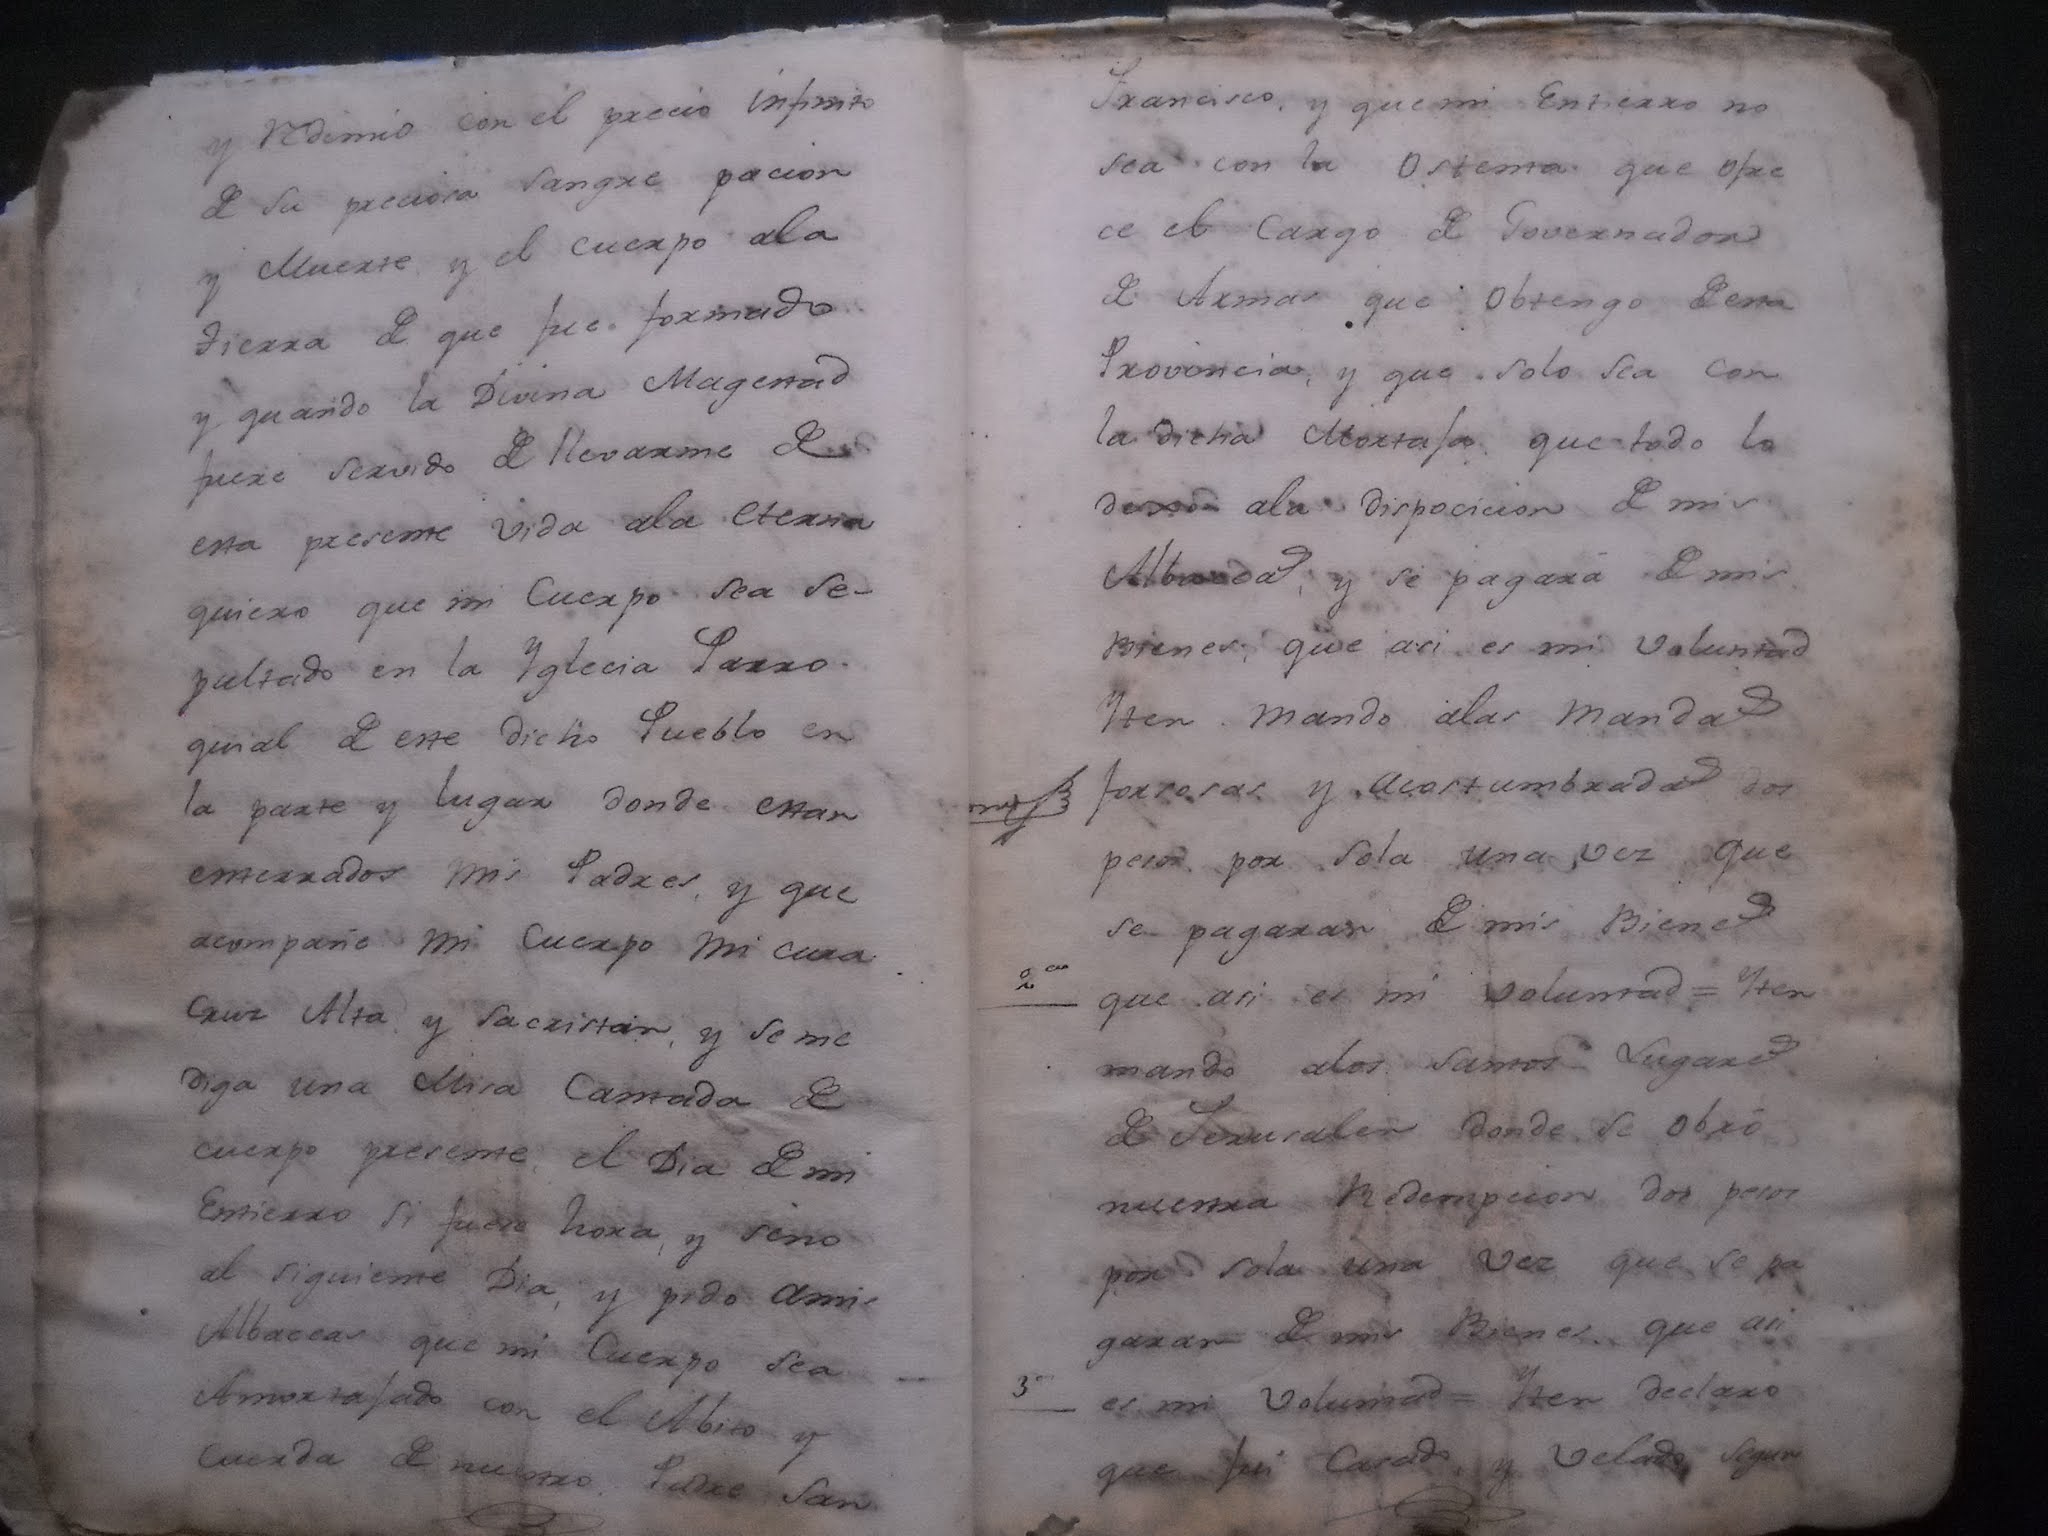 y Redimio con el precio infinito
de su preciosa sangre pacion
y Muerte y el cuerpo ala
tierra de que fue formado
y quando la Divina Magestad
fuere servido de llevarme de
esta presente vida ala eterna
quiero que mi Cuerpo sea se-
pultado en la Yglecia Parro-
quial de este dicho Pueblo en
la parte y lugar donde estan
enterrados mis Padres, y que
acompañe mi Cuerpo mi cura
Cruz Alta y sacristan, y se me
diga una Misa Cantada de
cuerpo presente, el Dia de mi
Entierro si fuere hora, y sino
al siguiente Dia, y pido amis
Albaceas que mi Cuerpo sea
Amortajado con el Abito y
cuerda de nuestro Padre San
Francisco, y que mi Entierro no
sea con la Ostenta que ofre
ce el Cargo de Governador
de Armas que Obtengo de esta
Provincia, y que solo sea con
la dicha Mortaja que todo lo
ala dispocicion de mis
y se pagará de mis
Bienes, que asi es mi voluntad
Yten mando alas Mandas
forsosas y Acostumbradas dos
pesos por sola una vez que
se pagaran de mis Bienes
2ᵃ
que asi es mi voluntad = Yten
mando alos Santos Lugares
de Jerusalen donde se Obró
nuestra Redempcion dos pesos
por sola una vez que se pa
garan de mis Bienes que asi
3ᵃ
es mi Voluntad = Yten declaro
que fui Casado, y Velado segun